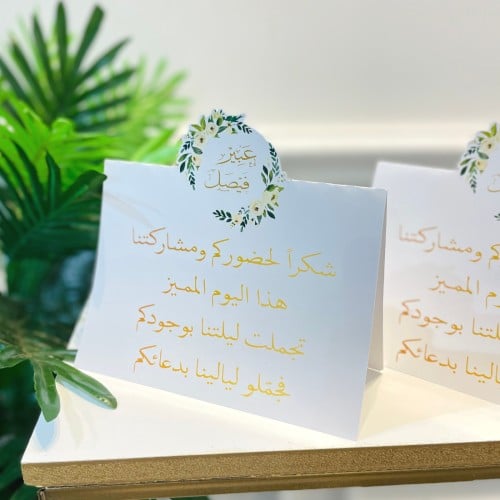 عَبِيْر
فَيْصَل
شكراً لحضوركم ومشاركتنا
هذا اليوم المميز
تجملت ليلتنا بوجودكم
فجمّلو ليالينا بدعائكم
ومشاركتنا
المميز
بوجودكم
ليالينا بدعائكم